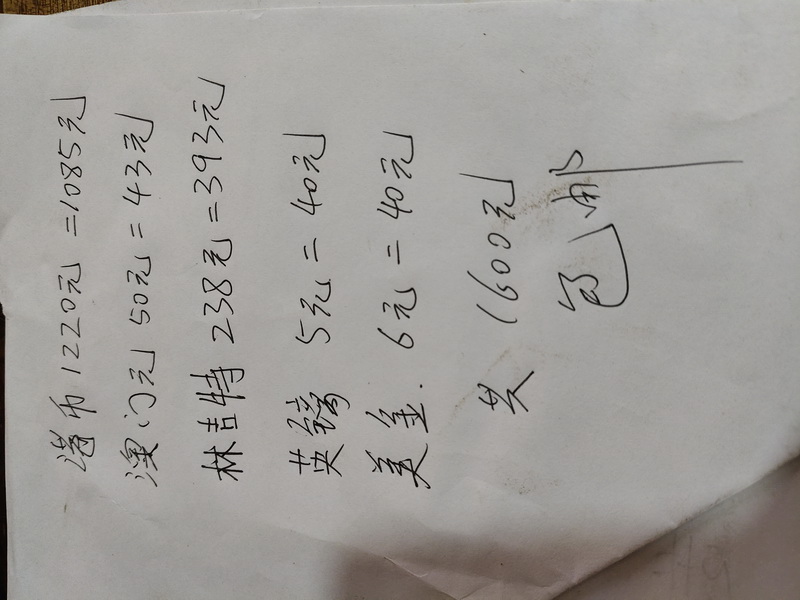 港币1220元=1085元
澳门元50元=43元
林吉特238元=393元
英镑 5元=40元
美金. 6元=40元
共 1600元
包邮